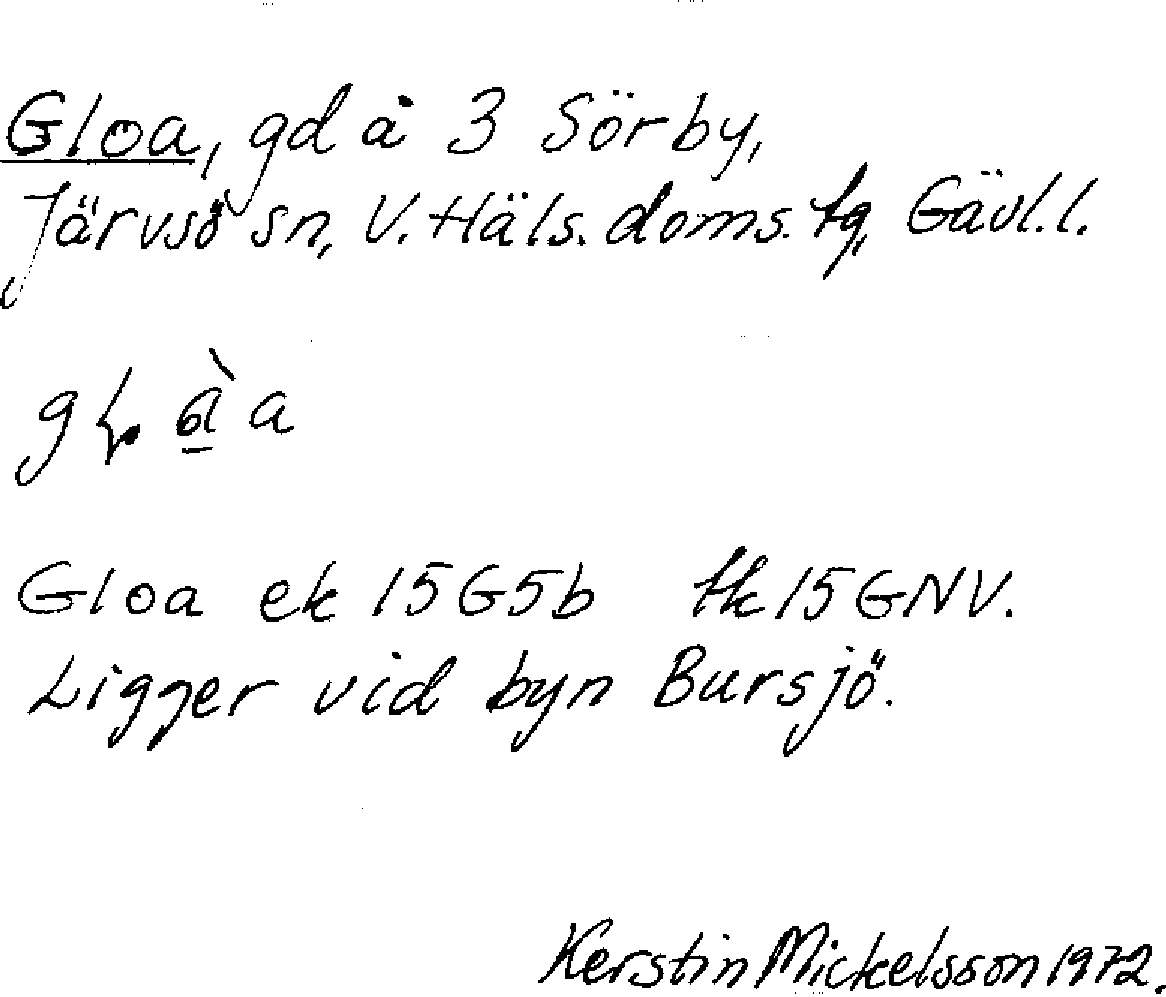 Gloa, gd å 3 Sörby,
Järvsö sn, V. Häls. doms. fg, Gävl.l.
Gloa ek 15G5b tk 15GNV.
Ligger vid byn Bursjö.
Kerstin Mickelsson 1972.